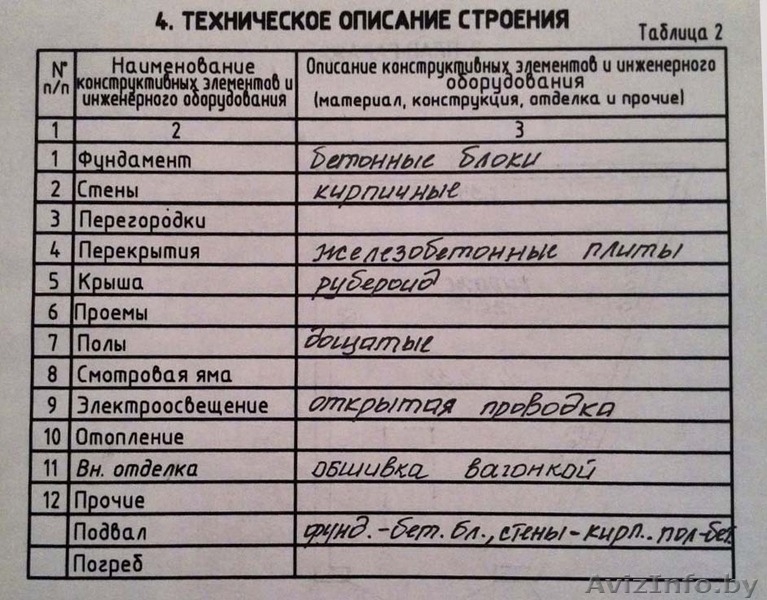 4. ТЕХНИЧЕСКОЕ ОПИСАНИЕ СТРОЕНИЯ
Таблица 2
№ п/п
Наименование
конструктивных элементов и
инженерного оборудования
Описание конструктивных элементов и инженерного
оборудования
(материал, конструкция, отделка и прочие)
1 2 3
1 Фундамент бетонные блоки
2 Стены кирпичные
3 Перегородки
4 Перекрытия железобетонные плиты
5 Крыша рубероид
6 Проемы
7 Полы дощатые
8 Смотровая яма
9 Электроосвещение открытая проводка
10 Отопление
11 Вн. отделка обшивка вагонкой
12 Прочие
Подвал фунд.-бет. бл., стены-кирп.. пол-бет
Погреб
AvizInfo.by